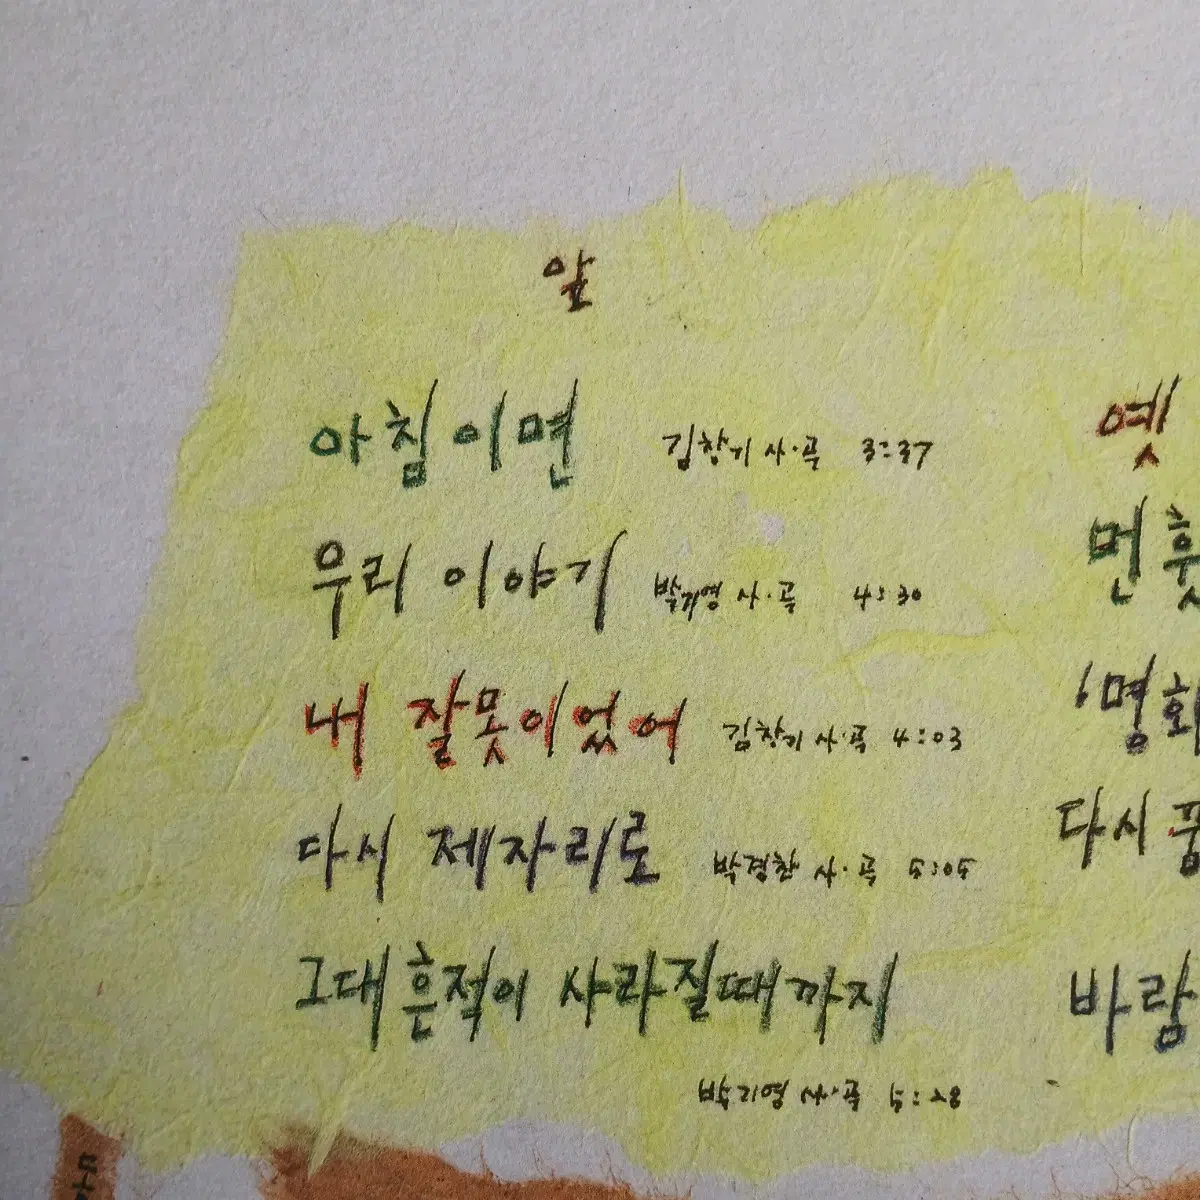 앞
아침이면 김창기 사·곡 3:37
우리 이야기 박기영 사·곡 4:30
내 잘못이었어 김창기 사·곡 4:03
다시 제자리로 박경찬 사·곡 5:05
그대 흔적이 사라질때까지
박기영 사·곡 5:28
옛
먼 훗
명화
다시
바람